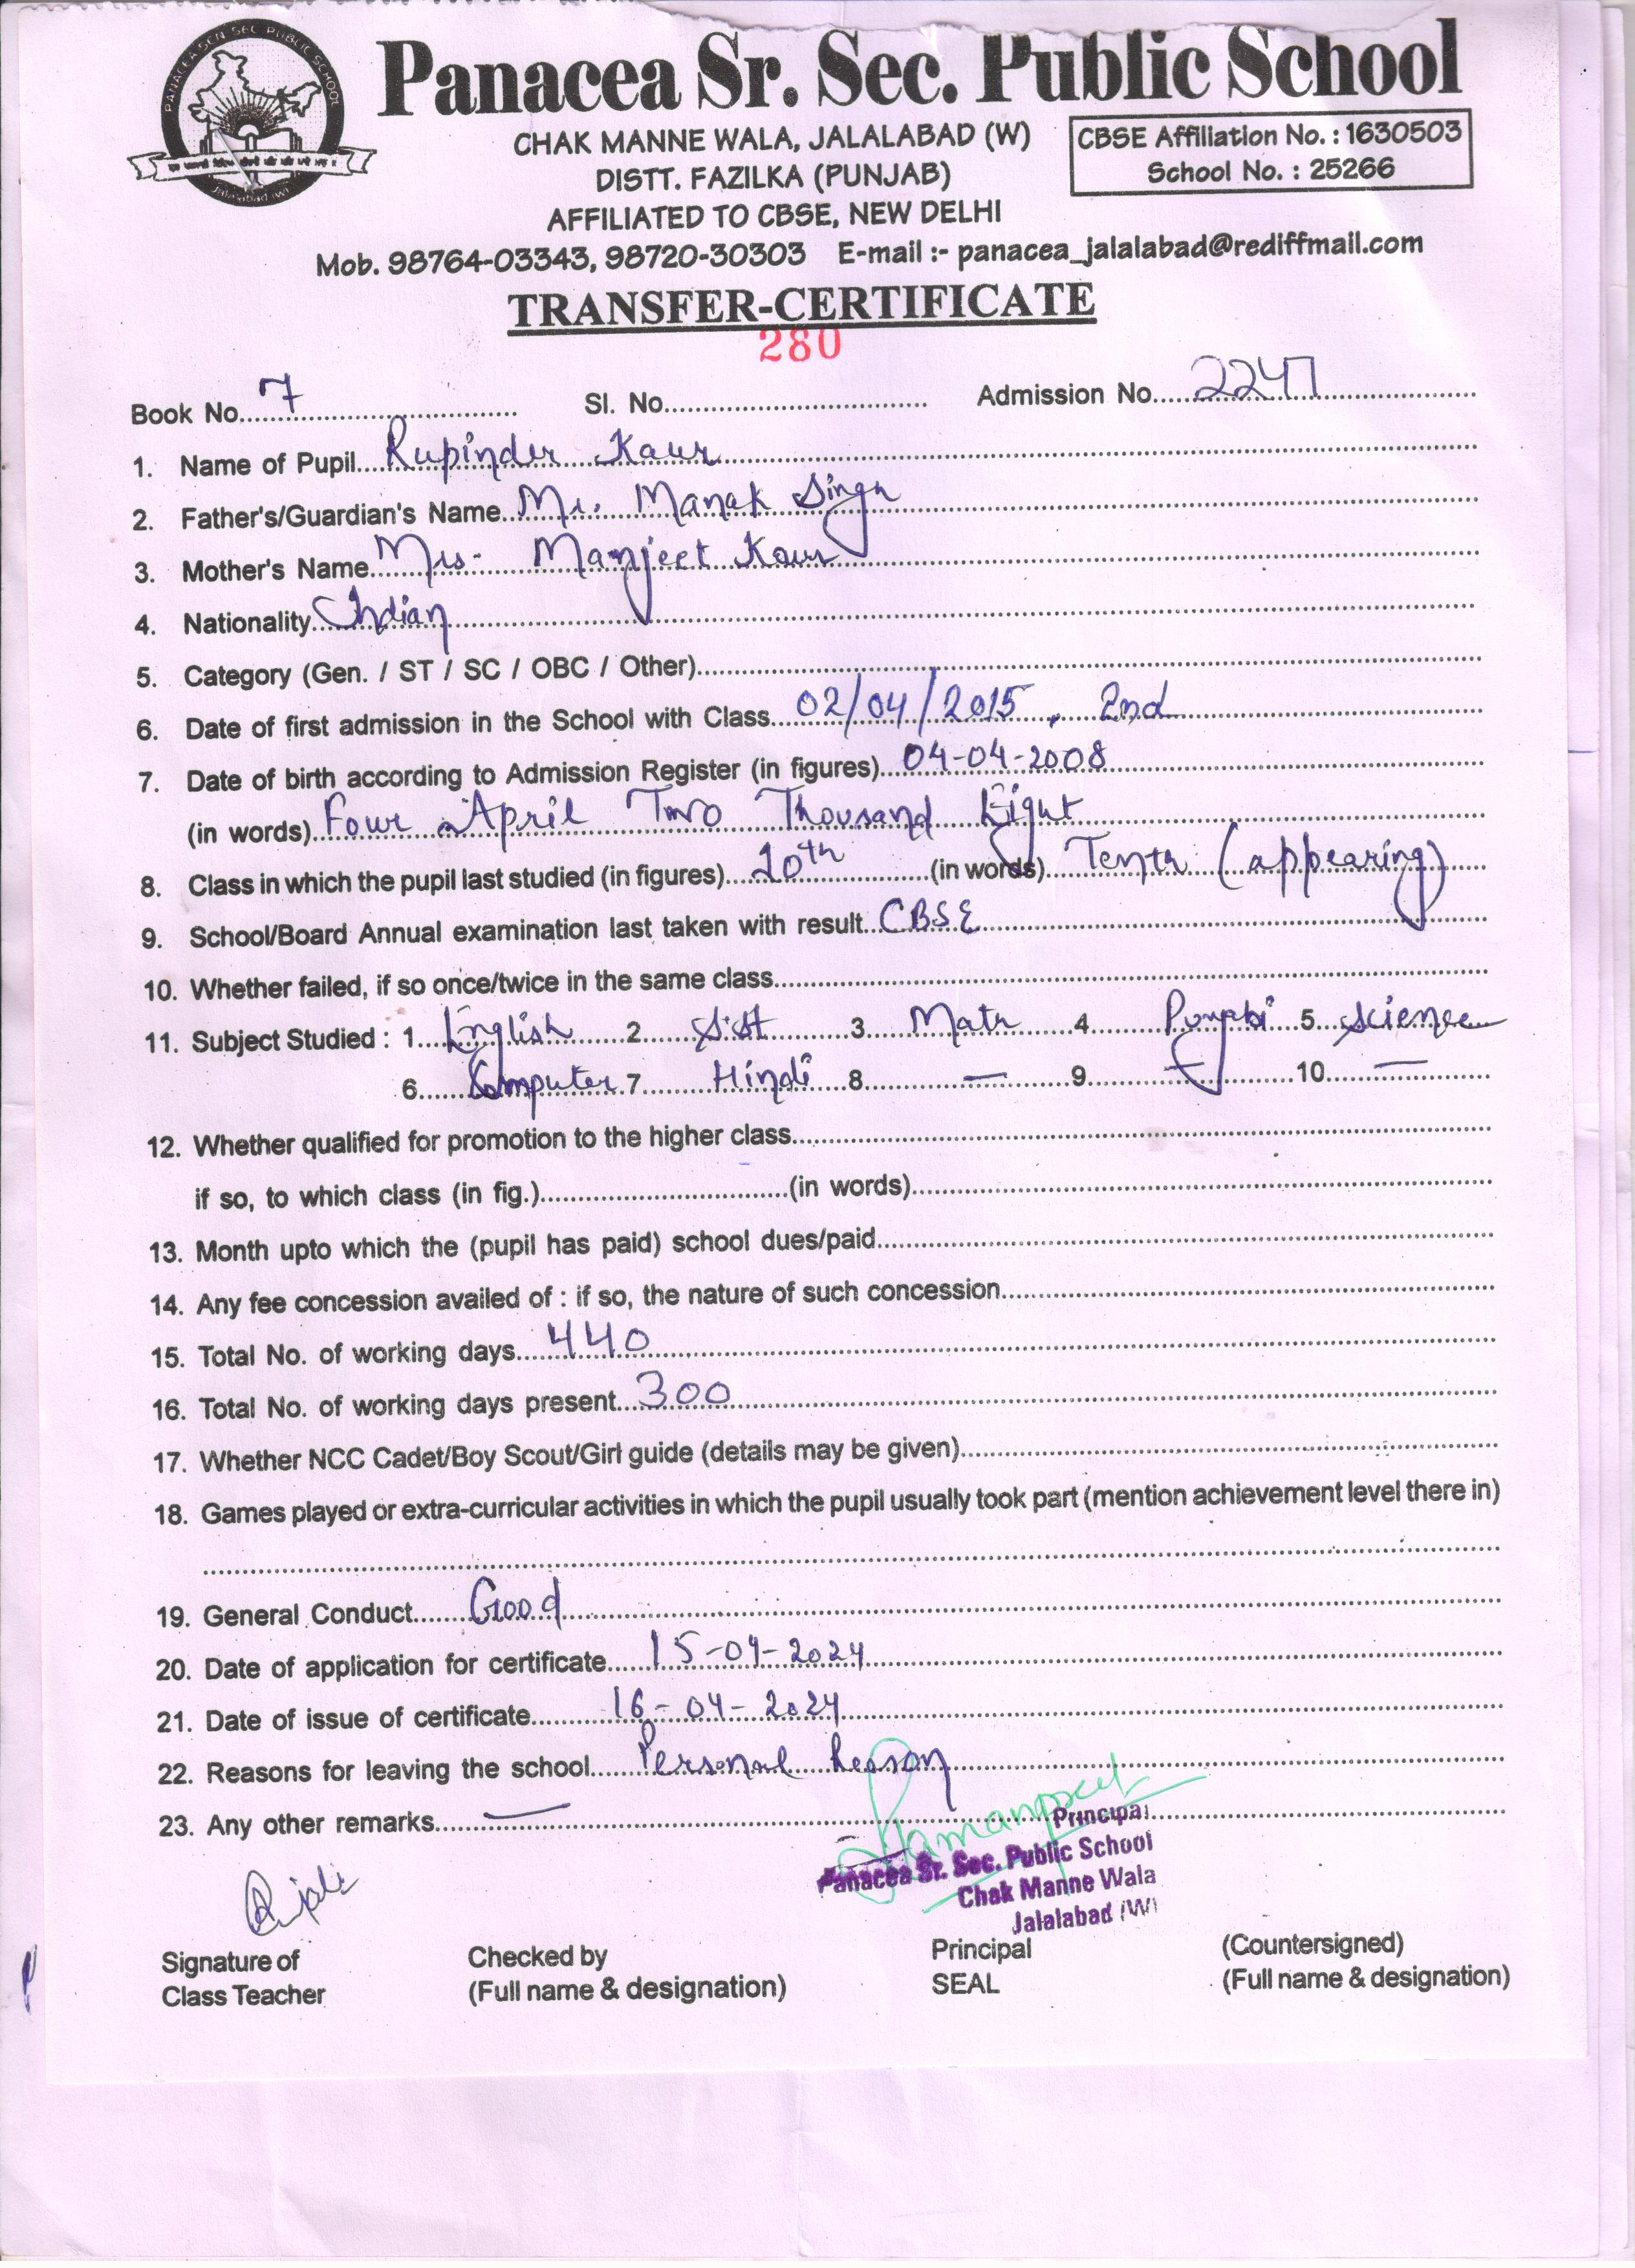 PANACEA SEN SEC PUBLIC SCHOOL
Jalalabad (W)
Panacea Sr. Sec. Public School
CHAK MANNE WALA, JALALABAD (W)
DISTT. FAZILKA (PUNJAB)
AFFILIATED TO CBSE, NEW DELHI
CBSE Affiliation No. : 1630503
School No. : 25266
Mob. 98764-03343, 98720-30303 E-mail :- panacea_jalalabad@rediffmail.com
TRANSFER-CERTIFICATE
280
Book No. 7 Sl. No. Admission No. 2247
1. Name of Pupil Rupinder Kaur
2. Father's/Guardian's Name Mr. Manak Singh
3. Mother's Name Mrs. Manjeet Kaur
4. Nationality Indian
5. Category (Gen. / ST / SC / OBC / Other)
6. Date of first admission in the School with Class 02/04/2015, 2nd
7. Date of birth according to Admission Register (in figures) 04-04-2008
(in words) Four April Two Thousand Eight
8. Class in which the pupil last studied (in figures) 10th (in words) Tenth (appearing)
9. School/Board Annual examination last taken with result CBSE
10. Whether failed, if so once/twice in the same class
11. Subject Studied : 1. English 2 S.St 3. Math 4 Punjabi 5. Science
6. Computer 7 Hindi 8. — 9. — 10. —
12. Whether qualified for promotion to the higher class
if so, to which class (in fig.) (in words)
13. Month upto which the (pupil has paid) school dues/paid
14. Any fee concession availed of : if so, the nature of such concession
15. Total No. of working days 440
16. Total No. of working days present 300
17. Whether NCC Cadet/Boy Scout/Girl guide (details may be given)
18. Games played or extra-curricular activities in which the pupil usually took part (mention achievement level there in)
19. General Conduct Good
20. Date of application for certificate 15-04-2024
21. Date of issue of certificate 16-04-2024
22. Reasons for leaving the school Personal Reason
23. Any other remarks —
Principal
Panacea Sr. Sec. Public School
Chak Manne Wala
Jalalabad (W)
Signature of Checked by Principal (Countersigned)
Class Teacher (Full name & designation) SEAL (Full name & designation)